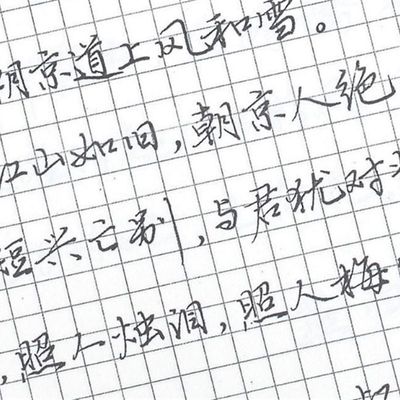 朝京道上风和雪。
江山如旧,朝京人绝
短兴亡别,与君犹对
,照人烛泪,照人梅